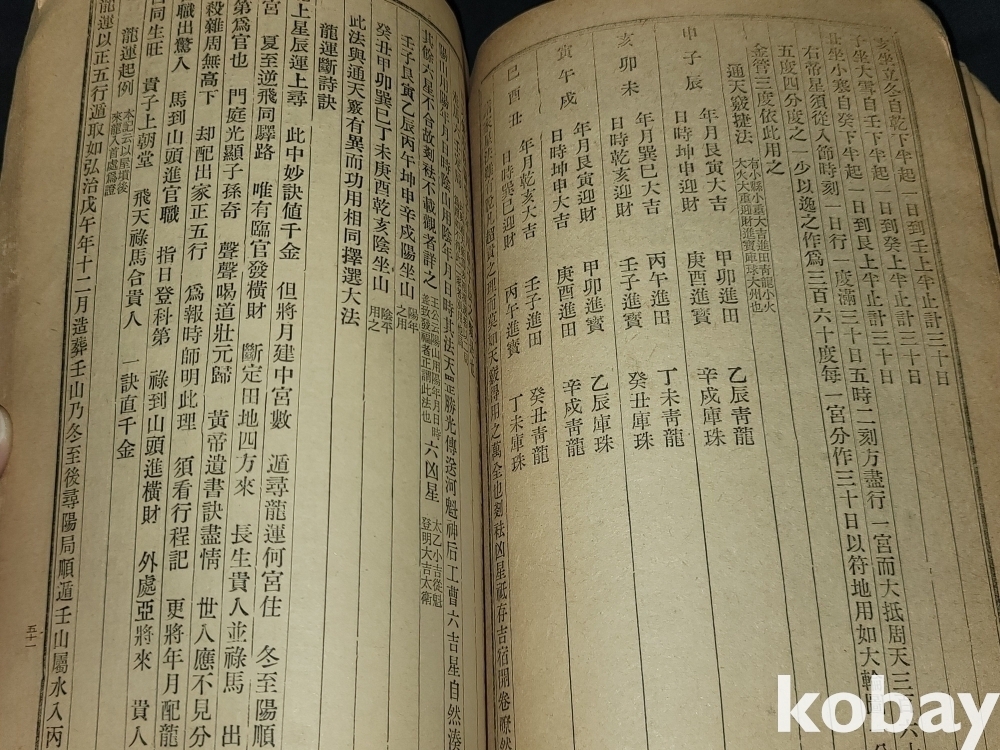 亥坐立冬自乾下半起一日到壬上半止計三十日
子坐大雪自壬下半起一日到癸上半止計三十日
丑坐小寒自癸下半起一日到艮上半止計三十日
右帝星須從入節時刻一日行一度滿三十日五時二刻方盡行一宮而大抵周天三百六
五度四分度之一少以逸之作爲三百六十度每一宮分作三十日以符地用如大輪圖
金管三度依此用之
通天竅捷法
申子辰
年月艮寅大吉 甲卯進田 乙辰靑龍
日時坤申迎財 庚酉進寶 辛戌庫珠
亥卯未
年月巽巳大吉 丙午進田 丁未靑龍
日時乾亥迎財 壬子進寶 癸丑庫珠
寅午戌
年月艮寅大吉 甲卯進寶 乙辰庫珠
日時坤申迎財 庚酉進田 辛戌靑龍
巳酉丑
年月乾亥大吉 壬子進田 癸丑靑龍
日時巽巳迎財 丙午進寶 丁未庫珠
之萬全也剗祛凶星祗存吉宿開卷瞭然
時此法天罡勝光傳送河魁神后工曹六吉星自然湊
其餘六星不合故剗祛不載觀者詳之 王公云陽山用陽年月日時 善致發福者正謂此法也 六凶星 太乙小吉從魁 登明大吉太衛
壬子艮寅乙辰丙午坤申辛戌陽坐山 陽年之用
癸丑甲卯巽巳丁未庚酉乾亥陰坐山 陰平用之
此法與通天竅有異而功用相同擇選大法
龍運斷詩訣
上星辰運上尋 此中妙訣値千金 但將月建中宮數 遁尋龍運何宮住 冬至陽順
宮 夏至逆飛同驛路 唯有臨官發橫財 斷定田地四方來 長生貴人並祿馬 出
第爲官也 門庭光顯子孫奇 聲聲喝道壯元歸 黃帝遺書訣盡情 世人應不見分
殺雜周無高下 却配出家正五行 爲報時師明此理 須看行程記 更將年月配龍
職出驚人 馬到山頭進官職 指日登科第 祿到山頭進橫財 外處亞將來 貴人
同生旺 貴子上朝堂 飛天祿馬合貴人 一訣直千金
龍運起例 本記云以星墳後 來龍入首處爲證
龍運以正五行遁取如弘治戊午年十二月造葬壬山乃冬至後尋陽局順遁壬山屬水入丙
五十一
kobay